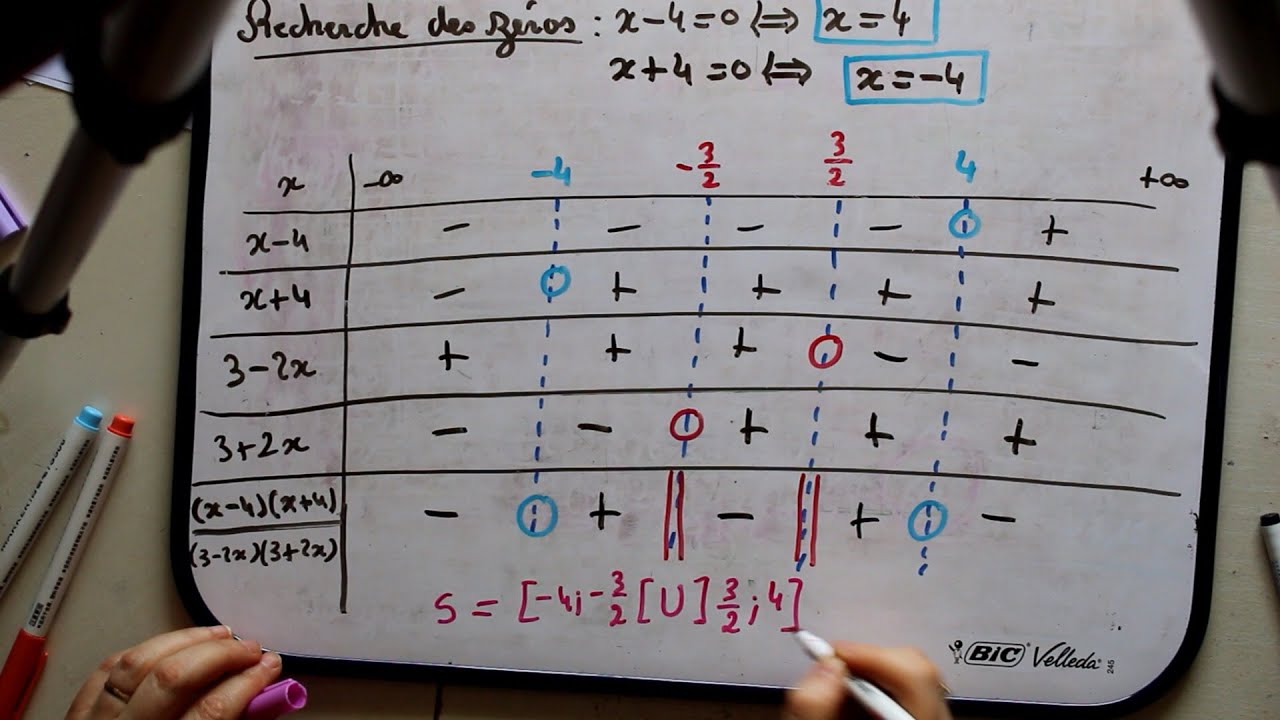 Recherche des zéros : x-4=0 ⟺ x=4
x+4=0 ⟺ x=-4
x -∞ -4 -3/2 3/2 4 +∞
x-4 - - - - 0 +
x+4 - 0 + + + +
3-2x + + + 0 - -
3+2x - - 0 + + +
(x-4)(x+4)/(3-2x)(3+2x) - 0 + || - || + 0 -
S = [-4;-3/2[U]3/2;4]
BIC Velleda 245